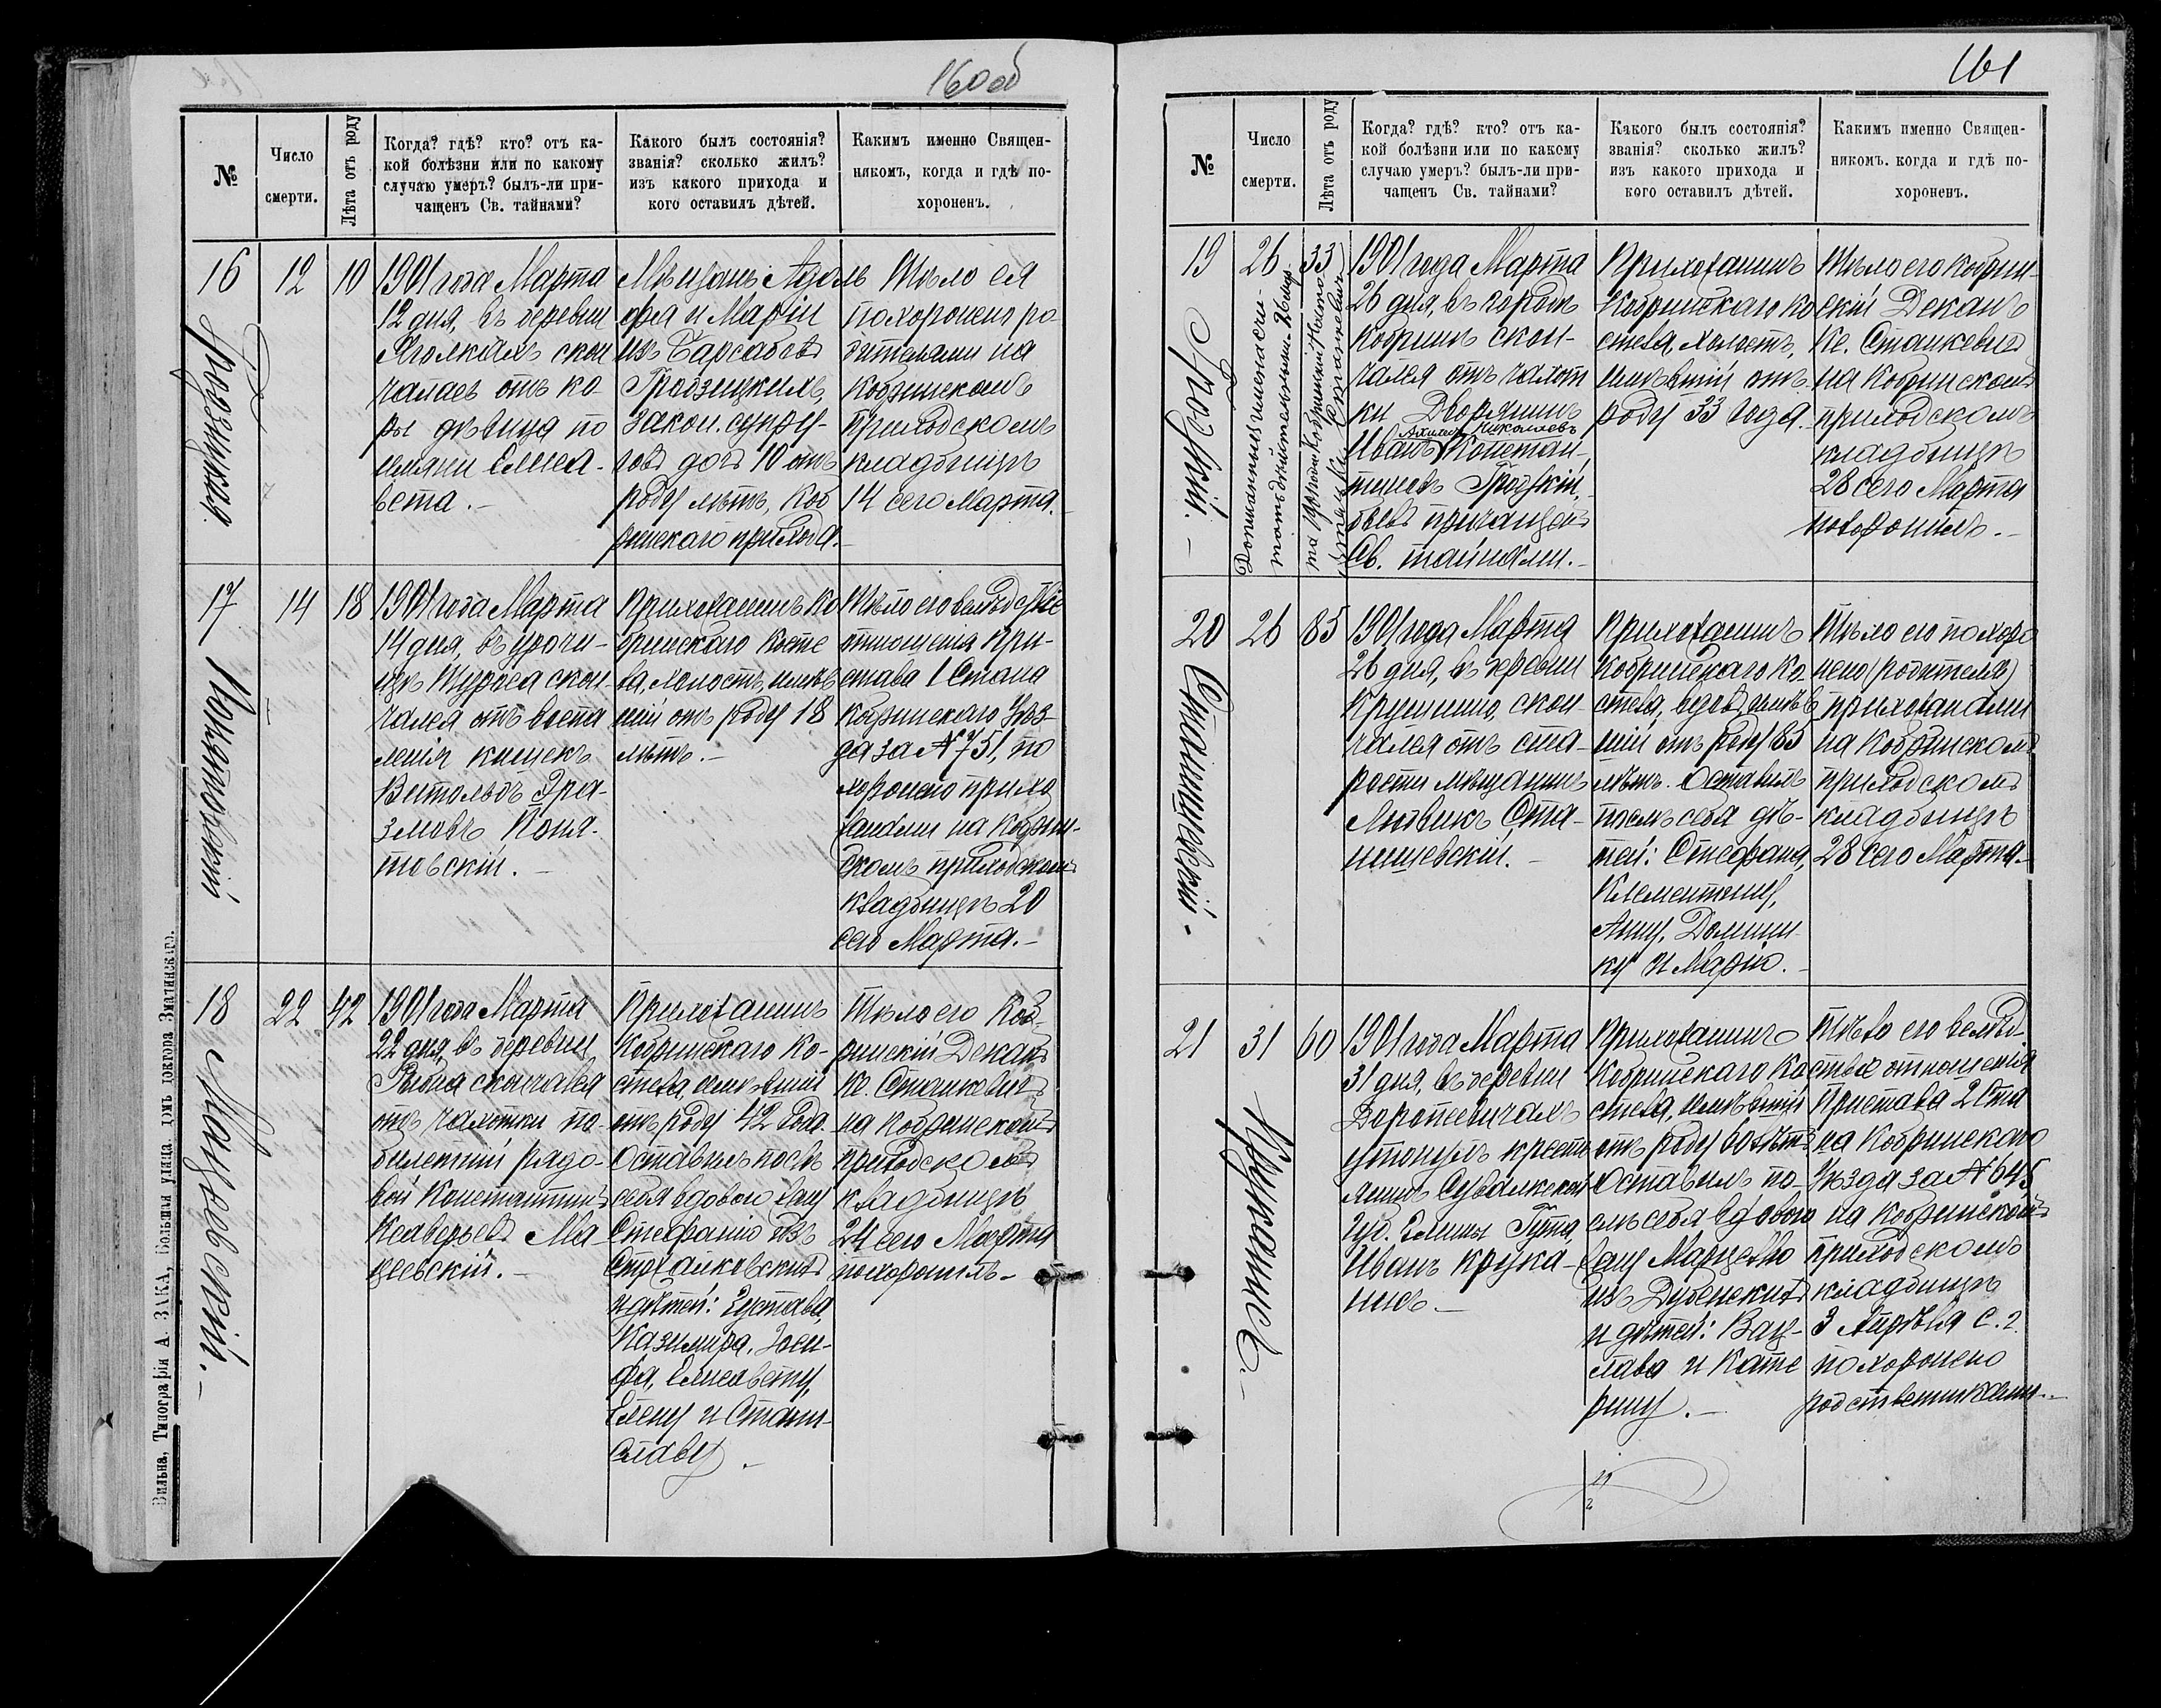 160об
№
Число
смерти.
Лѣта отъ роду
Когда? гдѣ? кто? отъ ка-
кой болѣзни или по какому
случаю умеръ? былъ-ли при-
чащенъ Св. тайнами?
Какого былъ состоянія?
званія? сколько жилъ?
изъ какого прихода и
кого оставилъ дѣтей.
Какимъ именно Священ-
никомъ, когда и гдѣ по-
хороненъ.
16
Гродзицкая
12
10
1901 года Марта
12 дня, въ деревни
скон
чалась отъ ко-
ры дѣвица по
имени Елиса-
вета.-
Мѣщанъ Адоль
фа и Маріи
изъ
Гродзицкихъ,
закон. супру-
говъ дочь 10 отъ
роду лѣтъ, Коб
ринскаго прихода.-
Тѣло ея
похоронено ро-
дителями на
Кобринскомъ
приходскомъ
кладбищѣ
14 сего Марта.
17
Понятовскій
14
18
1901 года Марта
14 дня, въ урочи-
щѣ скон-
чался отъ воспа
ленія кишекъ
Витольдъ Эра-
змовъ Поня-
товскій.-
Прихожанинъ Ко
бринскаго косте
ла, холостъ, имѣв
шій отъ роду 18
лѣтъ.-
Тѣло его вслѣдствіе
отношенія При-
става 1 Стана
Кобринскаго Уѣз-
да за № 751, по
хоронено прихо
жанами на Кобрин-
скомъ приходскомъ
кладбищѣ 20
сего Марта.-
18
Мацѣевскій.-
22
42
1901 года Марта
22 дня, въ деревни
скончался
отъ чахотки по-
билетный рядо-
вой Константинъ
Ксаверьевъ Ма-
цеевскій.-
Прихожанинъ
Кобринскаго ко-
стела, имѣвшій
отъ роду 42 года.
Оставилъ послѣ
себя вдовою жену
Стефанію изъ
и дѣтей: Густава,
Казимира, Іоси-
фа, Елисавету,
Елену и Стани-
славу.-
Тѣло его Коб-
ринскій Деканъ
Кс. Станкевичъ
на Кобринскомъ
приходскомъ
кладбищѣ
24 сего Марта
похоронилъ.-
Вильна, Типографія А. ЗАКА, Большая улица, домъ доктора Загаинскаго.
161
№
Число
смерти.
Лѣта отъ роду
Когда? гдѣ? кто? отъ ка-
кой болѣзни или по какому
случаю умеръ? былъ-ли при-
чащенъ Св. тайнами?
Какого былъ состоянія?
званія? сколько жилъ?
изъ какого прихода и
кого оставилъ дѣтей.
Какимъ именно Священ-
никомъ. когда и гдѣ по-
хороненъ.
19
Гродзкій.-
26
33
1901 года Марта
26 дня, въ городѣ
Кобринѣ скон-
чался отъ чахот
ки Дворянинъ
Николаевъ
Иванъ Констан-
тиновъ Гродзкій,
бывъ причащенъ
Св. тайнами.-
Прихожанинъ
Кобринскаго ко
стела, холостъ,
имѣвшій отъ
роду 33 года.
Тѣло его Кобрин-
скій Деканъ
Кс. Станкевичъ
на Кобринскомъ
приходскомъ
кладбищѣ
28 сего Марта
похоронилъ.-
20
Станишевскій.-
26
85
1901 года Марта
26 дня, въ деревни
Крушино, скон-
чался отъ ста-
рости мѣщанинъ
Людвикъ Ста-
нишевскій.-
Прихожанинъ
Кобринскаго ко-
стела, вдовъ, имѣв
шій отъ роду 85
лѣтъ. Оставилъ
послѣ себя дѣ-
тей: Стефана,
Клементину,
Анну, Домини-
ку и Марію.-
Тѣло его похоро
нено (родителя)
прихожанами
на Кобринскомъ
приходскомъ
кладбищѣ
28 сего Марта.-
21
Круканисъ.-
31
60
1901 года Марта
31 дня, въ деревни
Доропеевичахъ
утонулъ крестья
нинъ Сувалкской
Губ. Гмины
Иванъ Крука-
нисъ.-
Прихожанинъ
Кобринскаго ко
стела, имѣвшій
отъ роду 60 лѣтъ
Оставилъ по-
слѣ себя вдовою
жену Марцеллю
изъ Дубенскихъ
и дѣтей: Вац-
лава и Кате
рину.-
Тѣло его вслѣд-
ствіе отношенія
Пристава 2 Ста
на Кобринскаго
Уѣзда за № 645
на Кобринскомъ
приходскомъ
кладбищѣ
3 Апрѣля с. г.
похоронено
родственниками.-